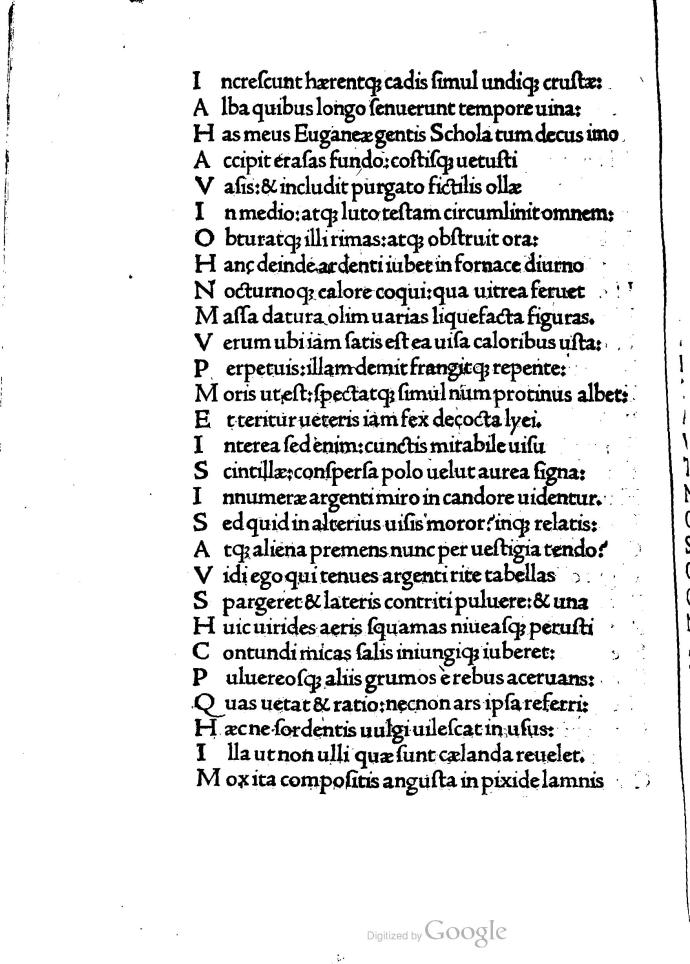 I ncreſcunt hærentqꝫ cadis ſimul undiqꝫ cruſtæ:
A lba quibus longo ſenuerunt tempore uina:
H as meus Euganeæ gentis Schola tum decus imo
A ccipit eraſas fundo: coſtiſqꝫ uetuſti
V aſis: & includit purgato fictilis ollæ
I n medio: atqꝫ luto teſtam circumlinit omnem:
O bturatqꝫ illi rimas: atqꝫ obſtruit ora:
H anc deinde ardenti iubet in fornace diurno
N octurnoqꝫ calore coqui: qua uitrea feruet
M aſſa datura olim uarias liquefacta figuras.
V erum ubi iam ſatis eſt ea uiſa caloribus uſta:
P erpetuis: illam demit frangitqꝫ repente:
M oris ut eſt: ſpectatqꝫ ſimul num protinus albet:
E t teritur ueteris iam fex decocta lyei.
I nterea ſed enim: cunctis mirabile uiſu
S cintillæ: conſperſa polo uelut aurea ſigna:
I nnumeræ argenti miro in candore uidentur.
S ed quid in alterius uiſis moror? inqꝫ relatis:
A tqꝫ aliena premens nunc per ueſtigia tendo?
V idi ego qui tenues argenti rite tabellas
S pargeret & lateris contriti puluere: & una
H uic uirides aeris ſquamas niueaſqꝫ peruſti
C ontundi micas ſalis iniungiqꝫ iuberet:
P uluereoſqꝫ aliis grumos e rebus aceruans:
Q uas uetat & ratio: necnon ars ipſa referri:
H æc ne ſordentis uulgi uileſcat in uſus:
I lla ut non ulli quæ ſunt cælanda reuelet.
M ox ita compoſitis anguſta in pixide lamnis
Digitized by Google